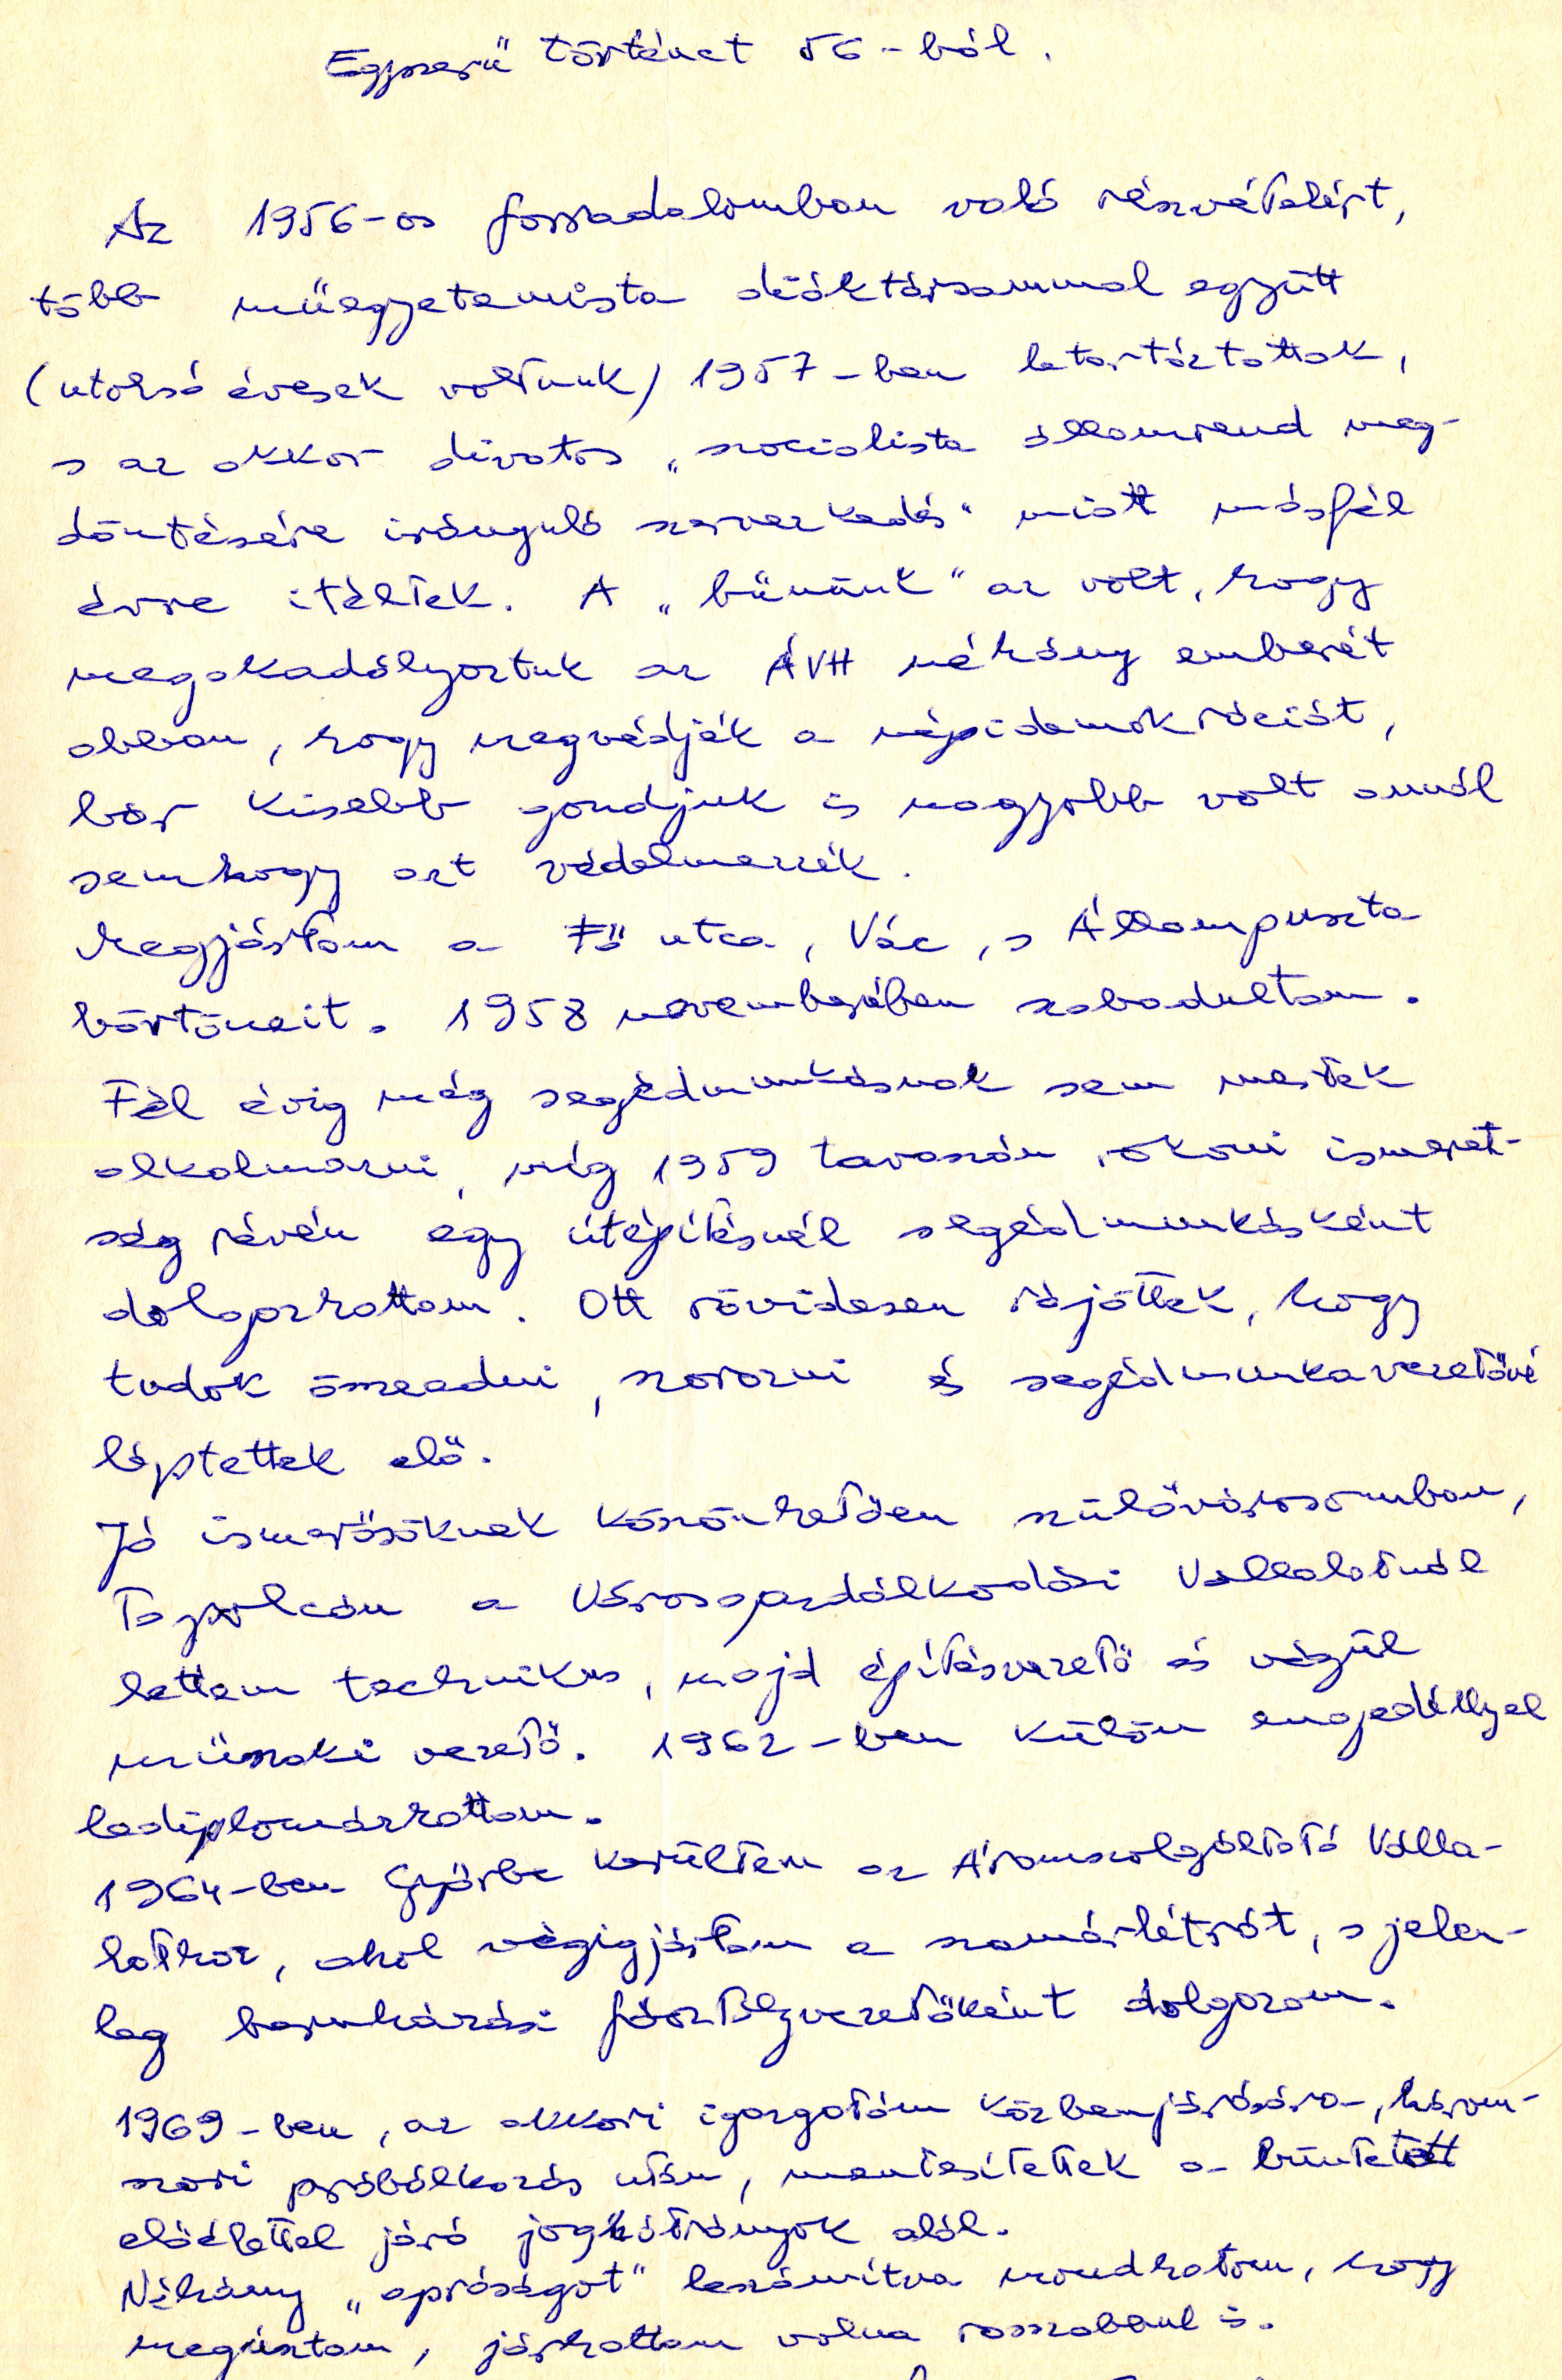 Egyszerű történet 56-ból.
Az 1956-os forradalomban való részvételért,
több műegyetemista diáktársammal együtt
(utolsó évesek voltunk) 1957-ben letartóztattak,
s az akkor divatos „szocialista államrend meg-
döntésére irányuló szervezkedés" miatt másfél
évre itéltek. A „bűnünk" az volt, hogy
megakadályoztuk az ÁVH néhány emberét
abban, hogy megvédjék a népidemokráciát,
bár kisebb gondjuk is nagyobb volt annál
semhogy azt védelmezzék.
Megjártam a Fő utca, Vác, s Állampuszta
börtöneit. 1958 novemberében szabadultam.
Fél évig még segédmunkásnak sem mertek
alkalmazni, míg 1959 tavaszán rokoni ismeret-
ség révén egy útépítésnél segédmunkásként
dolgozhattam. Ott rövidesen rájöttek, hogy
tudok összeadni, szorozni és segédmunkavezetővé
léptettek elő.
Jó ismerősöknek köszönhetően szülővárosomban,
Tapolcán a Városgazdálkodási Vállalatnál
lettem technikus, majd építésvezető és végül
műszaki vezető. 1962-ben külön engedéllyel
lediplomázhattam.
1964-ben Győrbe kerültem az Áramszolgáltató Válla-
lathoz, ahol végigjártam a szamárlétrát, s jelen-
leg beruházási főosztályvezetőként dolgozom.
1969-ben, az akkori igazgatóm közbenjárására, három-
szori próbálkozás után, mentesítettek a büntetett
előélettel járó joghátrányok alól.
Néhány „apróságot" leszámítva mondhatom, hogy
megúsztam, járhattam volna rosszabbul is.